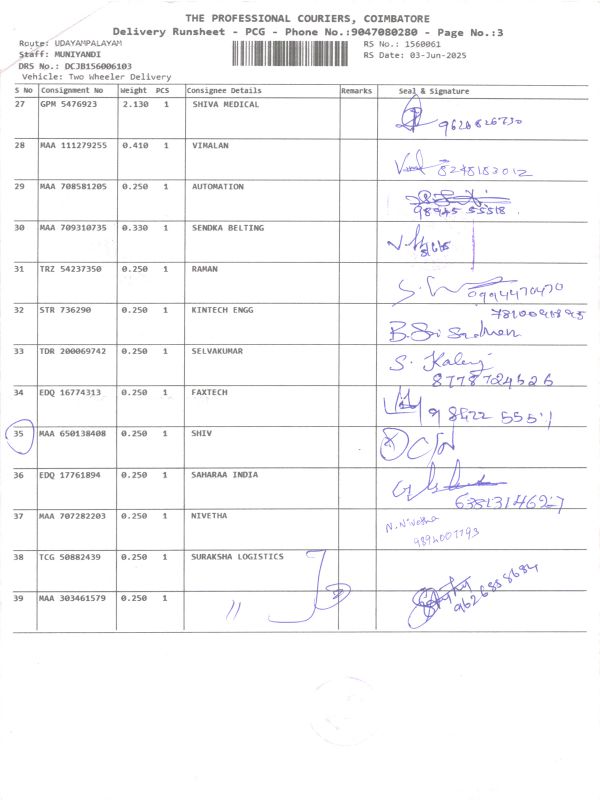 THE PROFESSIONAL COURIERS, COIMBATORE
Delivery Runsheet - PCG - Phone No.:9047080280 - Page No.:3
Route: UDAYAMPALAYAM
Staff: MUNIYANDI
DRS No.: DCJB156006103
Vehicle: Two Wheeler Delivery
RS No.: 1560061
RS Date: 03-Jun-2025
S No Consignment No Weight PCS Consignee Details Remarks Seal & Signature
27 GPM 5476923 2.130 1 SHIVA MEDICAL
28 MAA 111279255 0.410 1 VIMALAN
8248183012
29 MAA 708581205 0.250 1 AUTOMATION
98945 55518
30 MAA 709310735 0.330 1 SENDKA BELTING
31 TRZ 54237350 0.250 1 RAMAN
0994470470
32 STR 736290 0.250 1 KINTECH ENGG
33 TDR 200069742 0.250 1 SELVAKUMAR
8778724526
34 EDQ 16774313 0.250 1 FAXTECH
35 MAA 650138408 0.250 1 SHIV
36 EDQ 17761894 0.250 1 SAHARAA INDIA
6381314627
37 MAA 707282203 0.250 1 NIVETHA
N. Nivetha
9894007793
38 TCG 50882439 0.250 1 SURAKSHA LOGISTICS
39 MAA 303461579 0.250 1 "
9626858684